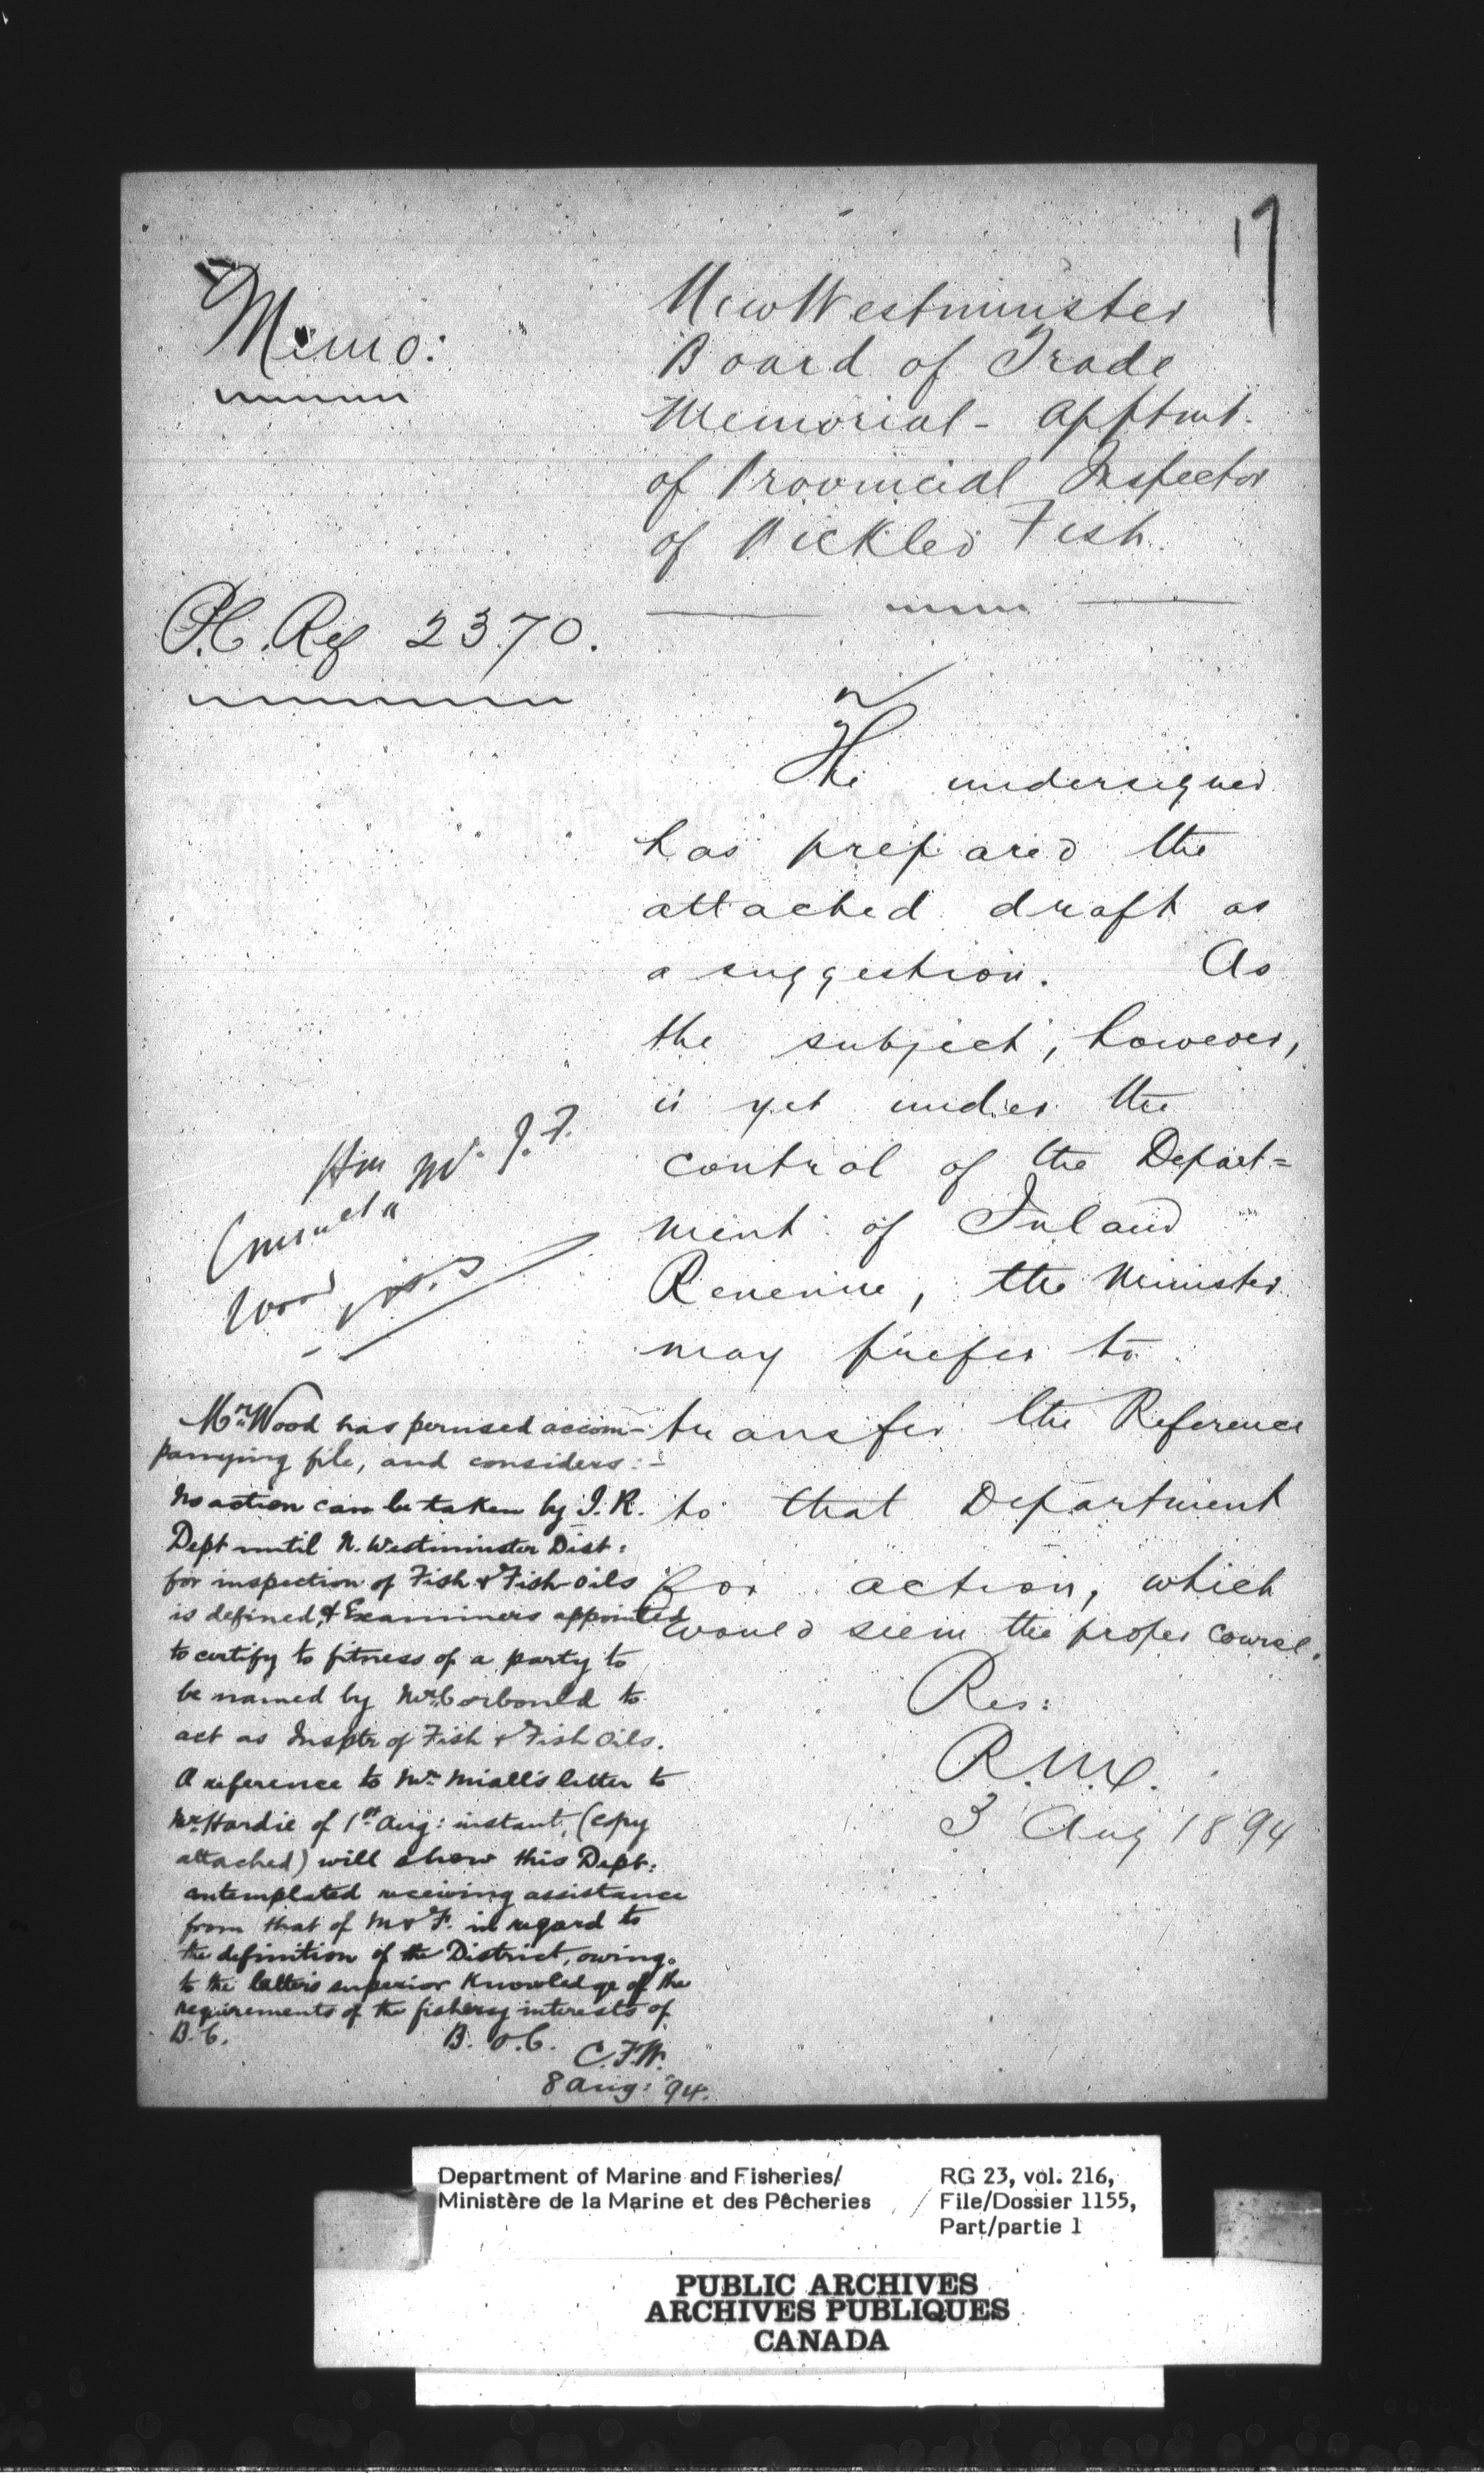 17
Memo:
New Westminster
Board of Trade
Memorial - Apptmt.
of Provincial Inspector
of Pickled Fish.
P.C. Ref 2370.
The undersigned
has prepared the
attached draft as
a suggestion. As
the subject, however,
is yet under the
control of the Depart=
ment of Inland
Revenue, the Minister
may prefer to
transfer the Reference
to that Department
for action, which
would seem the proper course.
Res:
3 Aug 1894
Mr. Wood has perused accom-
panying file, and considers:-
No action can be taken by I.R.
Dept until N. Westminster Dist:
for inspection of Fish & Fish Oils
is defined, & Examiners appointed
to certify to fitness of a party to
be named by Mr. Corbould to
act as Insptr of Fish & Fish Oils.
A reference to Mr. Miall's letter to
Mr. Hardie of 1st Aug: instant, (copy
attached) will show this Dept:
contemplated receiving assistance
from that of M & F. in regard to
the definition of the District, owing
to the latter's superior knowledge of the
requirements of the fishery interests of
B.C.
C.F.W.
8 Aug: 94.
Department of Marine and Fisheries/
Ministère de la Marine et des Pêcheries
RG 23, vol. 216,
File/Dossier 1155,
Part/partie 1
PUBLIC ARCHIVES
ARCHIVES PUBLIQUES
CANADA